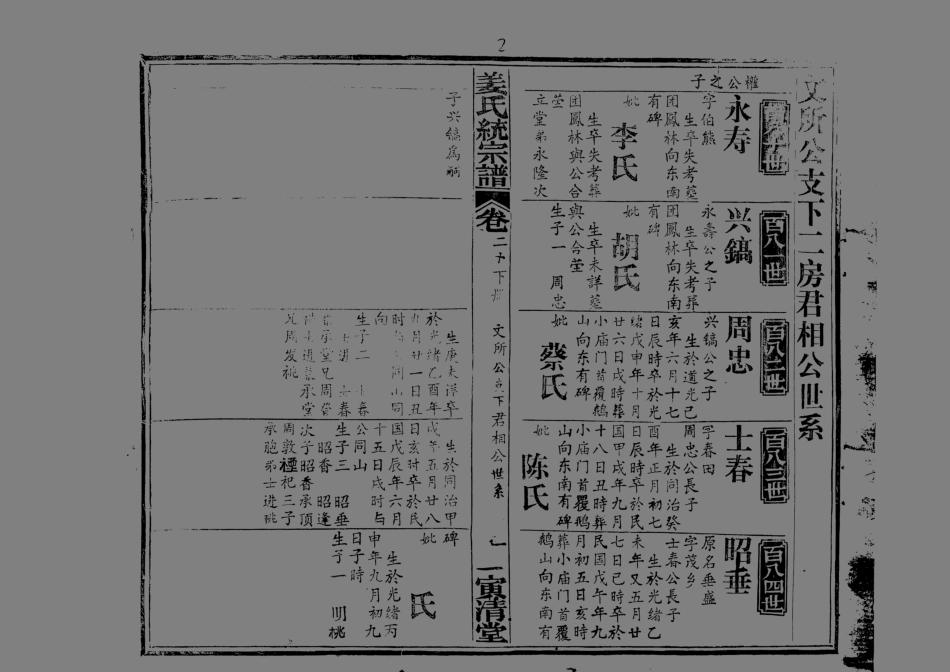 2
文所公支下二房君相公世系
權公之子
永寿
字伯熊
生卒失考墓
团鳳林向东南
有碑
妣 李氏
生卒失考葬
团鳳林與公合
茔
立堂弟永隆次
百八一世
兴鎬
永壽公之子
生卒失考葬
团鳳林向东南
有碑
妣 胡氏
生卒未詳墓
與公合茔
生子一 周忠
百八二世
周忠
兴鎬公之子
生於道光己
亥年六月十七
日辰時卒於光
緒戊申年十月
廿六日戌時葬
小庙门首覆鵝
山向东有碑
妣 蔡氏
百八三世
士春
字春田
周忠公長子
生於同治癸
酉年正月初七
日辰時卒於民
国甲戌年九月
十八日丑時葬
小庙门首覆鵝
山向东南有碑
妣 陈氏
百八四世
昭垂
原名垂盛
字茂乡
士春公長子
生於光緒乙
未年又五月廿
七日己時卒於
民国戊午年九
月初五日亥時
葬小庙门首覆
鵝山向东南有
姜氏統宗譜
卷二十下册
文所公支下君相公世系
一
寅清堂
子兴鎬爲嗣
生庚未詳卒
於光緒乙酉年
九月廿一日丑
时
向
生子二 士春
周发祧
生於同治甲
戌年五月廿八
日亥时卒於民
国戊辰年六月
十五日戌时与
公同山
生子三 昭垂
昭香 昭逢
次子昭香承顶
周敦禋祀三子
承胞弟士进祧
碑
妣 氏
生於光緒丙
申年九月初九
日子時
生子一 明桃